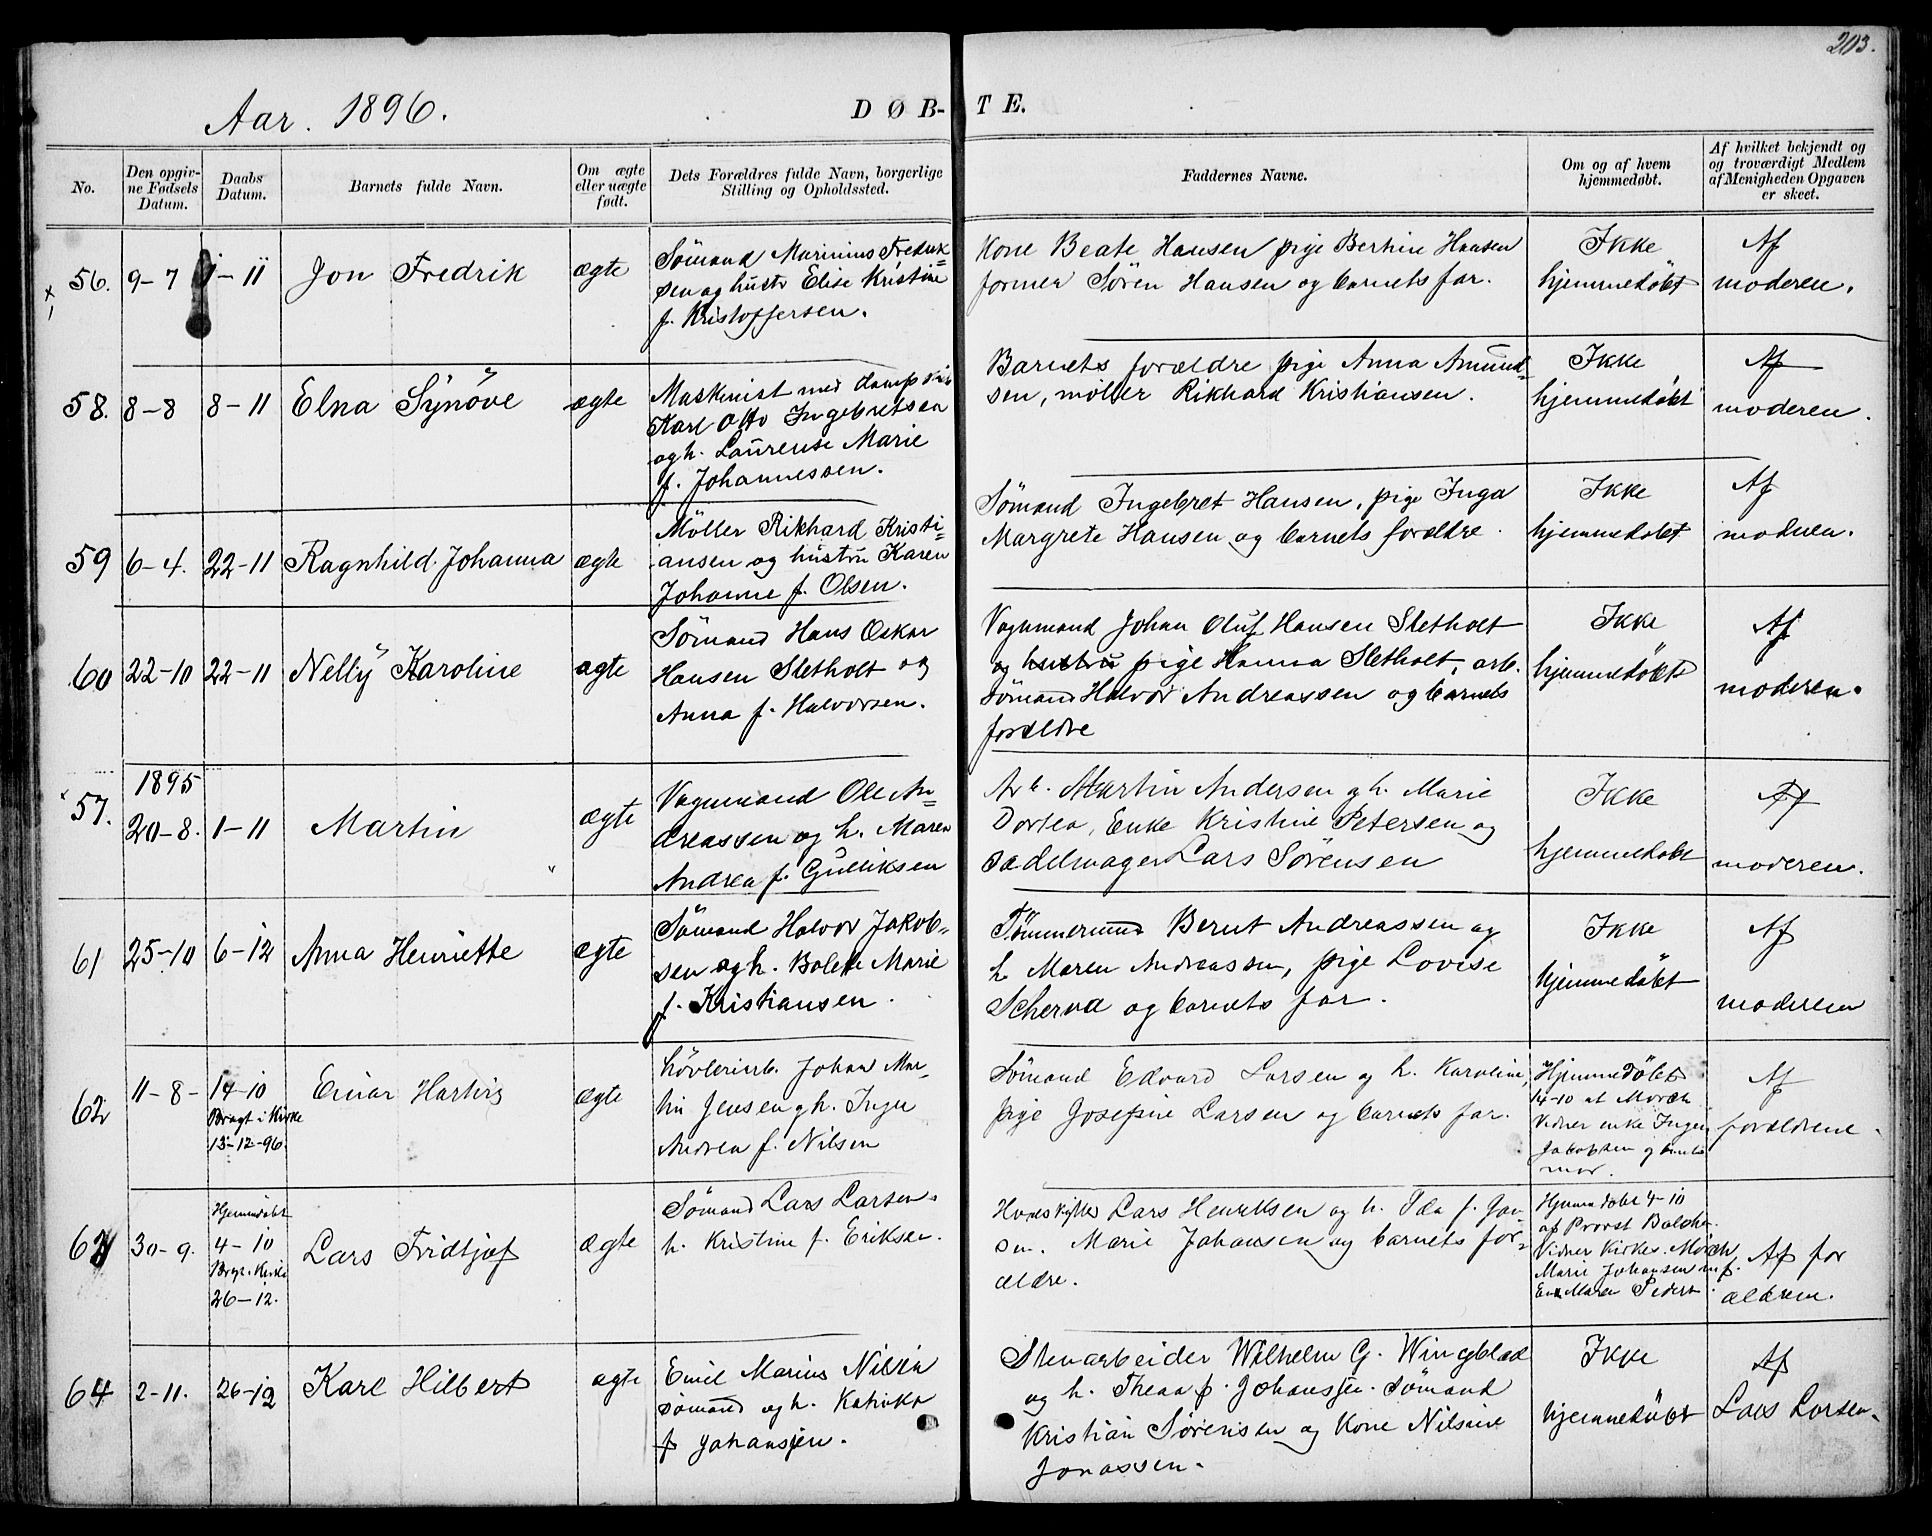 203.
Aar. 1896.
DØB-
TE.
No.
Den opgiv-
ne Fødsels
Datum.
Daabs
Datum.
Barnets fulde Navn.
Om ægte
eller uægte
født.
Dets Forældres fulde Navn, borgerlige
Stilling og Opholdssted.
Faddernes Navne.
Om og af hvem
hjemmedøbt.
Af hvilket bekjendt og
og troværdigt Medlem
af Menigheden Opgaven
er skeet.
56. 9-7 1-11 Jon Fredrik ægte
Sømand Marinius Fredrik=
sen og hustr Elise Kristine
f. Kristoffersen.
Kone Beate Hansen pige Berthine Hansen
former Søren Hansen og barnets far.
Ikke
hjemmedøbt
Af
moderen.
58. 8-8 8-11 Elna Synöve ægte
Maskinist med dampskib
Karl Otto Ingebretsen
og h. Laurense Marie
f. Johannessen.
Barnets forældre pige Anna Amund=
sen, møller Rikhard Kristiansen.
Ikke
hjemmedøbt
Af
moderen.
59 6-4. 22-11 Ragnhild Johanna ægte
Møller Rikhard Kristi=
ansen og hustru Karen
Johanne f. Olsen.
Sømand Ingebret Hansen, pige Inga
Margrete Hansen og barnets forældre.
Ikke
hjemmedøbt
Af
moderen.
60 22-10 22-11 Nelly Karoline ægte
Sømand Hans Oskar
Hansen Sletholt og
Anna f. Halvorsen.
Vognmand Johan Oluf Hansen Sletholt
og hustru pige Hanna Sletholt, arb.
Sømand Halvor Andreassen og barnets
forældre
Ikke
hjemmedøbt
Af
moderen.
57. 1895
20-8. 1-11 Martin ægte
Vognmand Ole An=
dreassen og h. Maren
Andrea f. Gulliksen
Arb. Martin Andersen og h. Marie
Dortea, Enke Kristine Petersen og
sadelmager Lars Sørensen
Ikke
hjemmedøbt
Af
moderen.
61 25-10 6-12 Anna Henriette ægte
Sømand Halvor Jakob-
sen og h. Bolette Marie
f. Kristiansen.
Tømmermand Bernt Andreassen og
h. Maren Andreassen, pige Lovise
Scherva og barnets far.
Ikke
hjemmedøbt
Af
moderen
62 11-8- 14-10
Bragt i Kirke
13-12-96.
Einar Hartvig ægte
Høvleriarb. Johan Mar-
tin Jensen og h. Inger
Andrea f. Nilsen
Sømand Edvard Larsen og h. Karoline,
pige Josefine Larsen og barnets far.
Hjemmedøbt
14-10 at Mørch
Vidner enke Inger
Jakobsen og barnets
mor.
Af
forældrene.
63 30-9.
Hjemmedøbt
4-10
Bragt i Kirke
26-12.
Lars Fridtjof ægte
Sømand Lars Larsen.
h. Kristine f. Eriksen.
Lars Henriksen og h. Ida f. Jan-
sen. Marie Johansen og barnets for-
ældre.
Hjemmedøbt 4-10
af Provst Balchen.
Vidner Kirkes. Mørch
Marie Johansen
Enke Maren Peders
Af for
ældrene.
64 2-11. 26-12 Karl Hilbert ægte
Emil Marius Nilsen
sømand og h. Katinka
f Johansen.
Stenarbeider Wilhelm G. Wingblad
og h. Thea f. Johanssen. Sømand
Kristian Sørensen og Kone Nilsine
Jonassen.
Ikke
hjemmedøbt
Af
Lars Larsen.